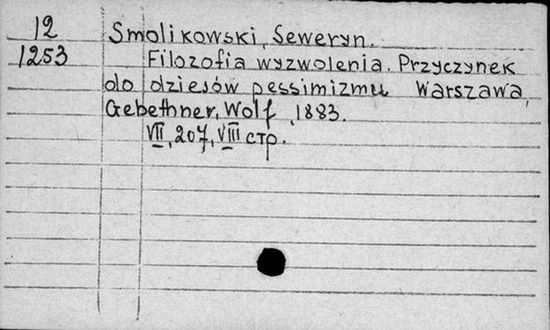 12 Smolikowski, Seweryn.
1253 Filozofia wyzwolenia. Przyczynek
do dziejów pessimizmu Warszawa,
Gebethner, Wolf, 1883.
VII, 207, VIII стр.